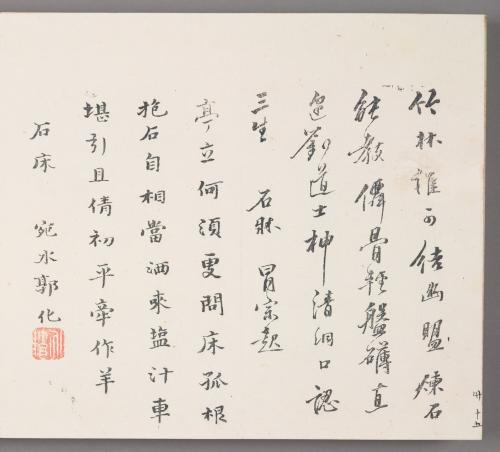 竹林誰可結幽盟煉石
能教僊骨輕盤礴直
邀劉道士神清洞口認
三生 石牀 冒宗起
亭立何須更問床孤根
抱石自相當洒來塩汁車
堪引且倩初平牽作羊
石床 宛水郭化
十五